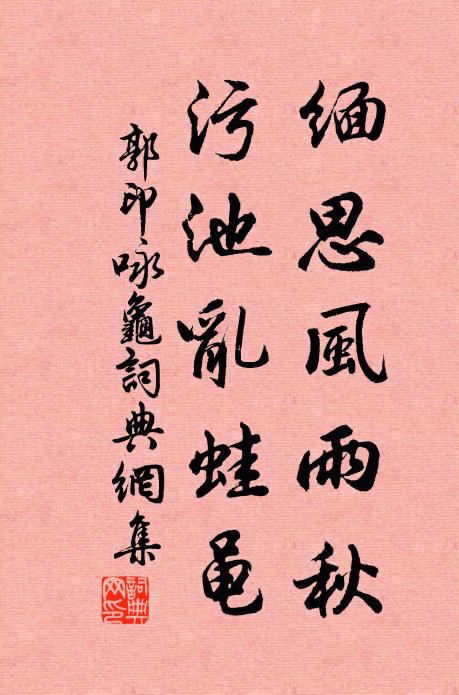 緬思風雨秋
污池亂蛙黽
郭印咏龜詞典網集
詞典網印